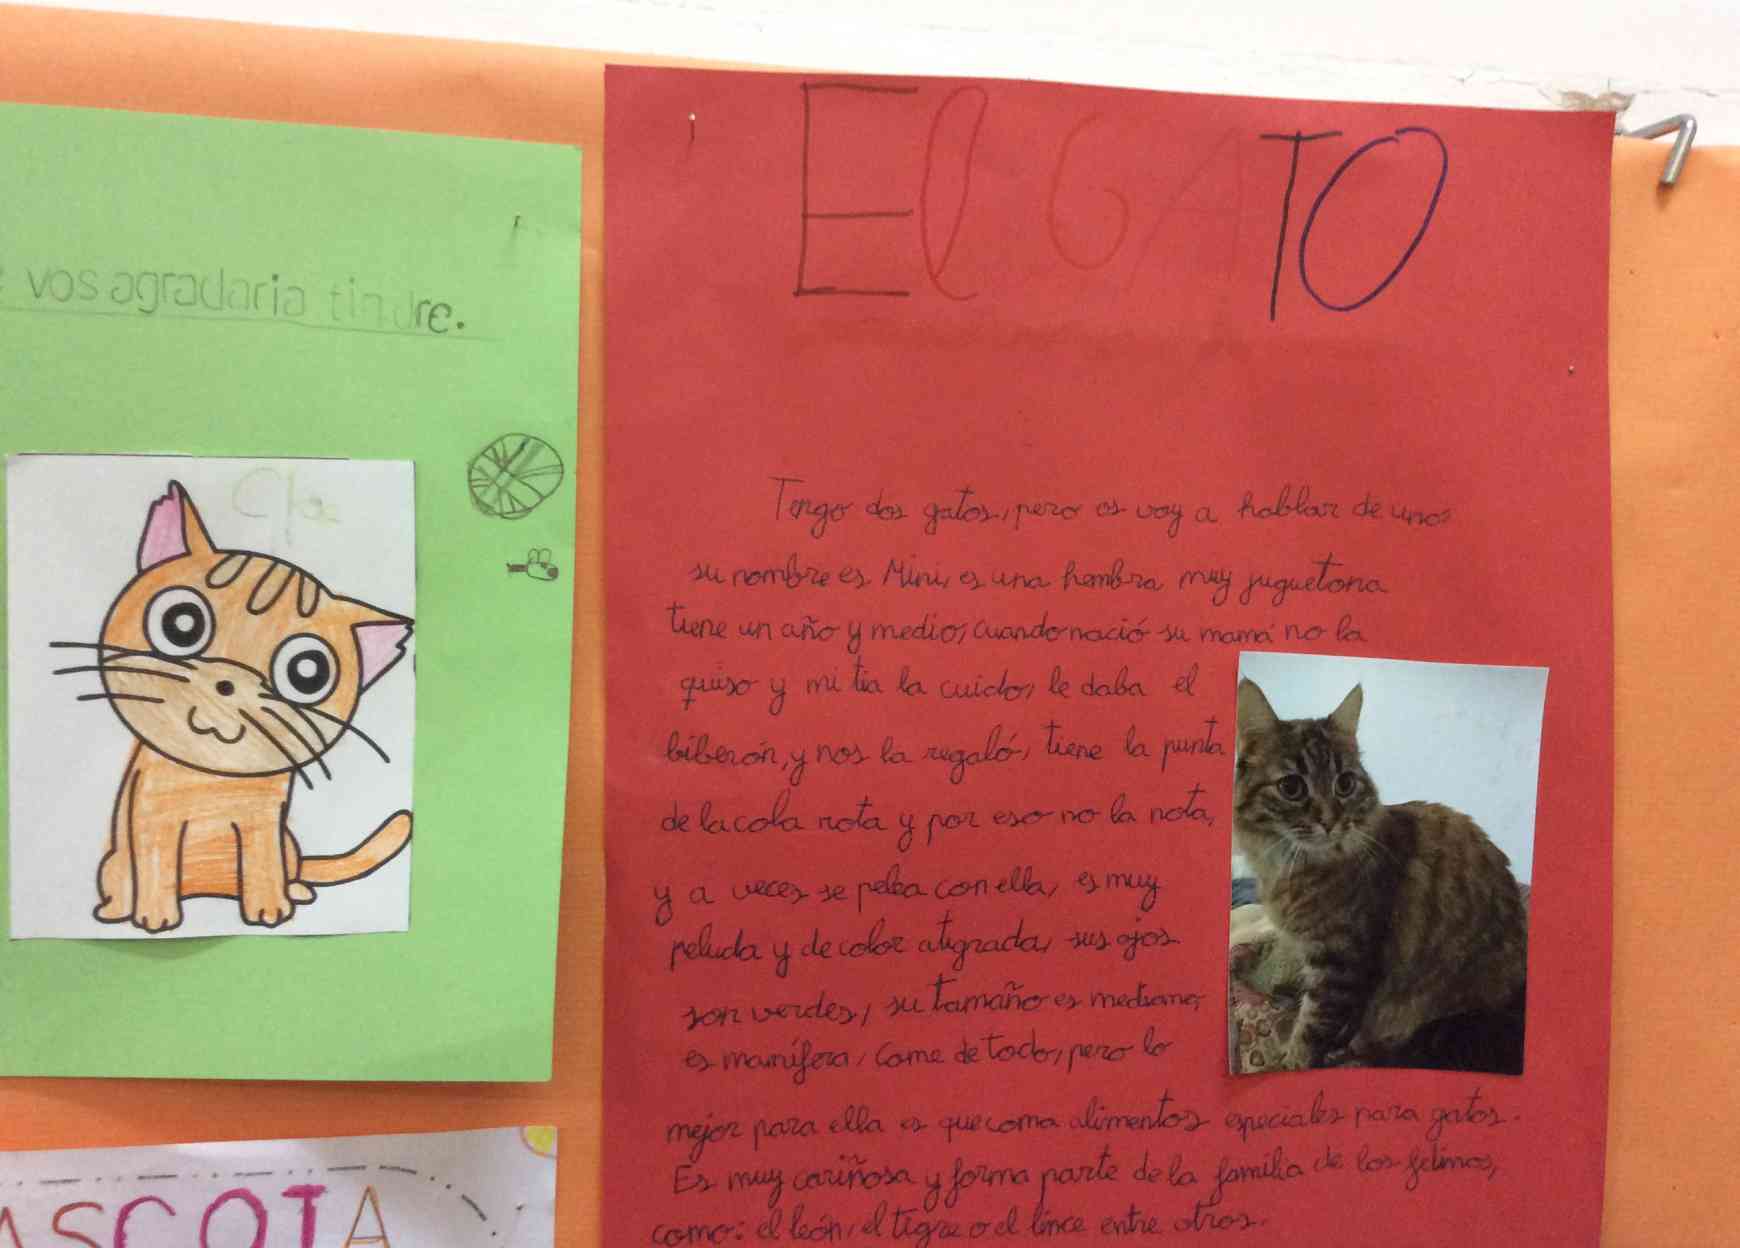 vos agradaria tindre.
El GATO
Tengo dos gatos, pero os voy a hablar de uno:
su nombre es Mini, es una hembra muy juguetona
tiene un año y medio, cuando nació su mamá no la
quiso y mi tia la cuido, le daba el
biberón, y nos la regaló, tiene la punta
de la cola rota y por eso no la nota,
y a veces se pelea con ella, es muy
peluda y de color atigrada, sus ojos
son verdes, su tamaño es mediano,
es mamífera, come de todo, pero lo
mejor para ella es que coma alimentos especiales para gatos.
Es muy cariñosa y forma parte de la familia de los felinos,
como: el león, el tigre o el lince entre otros.
ASCOTA